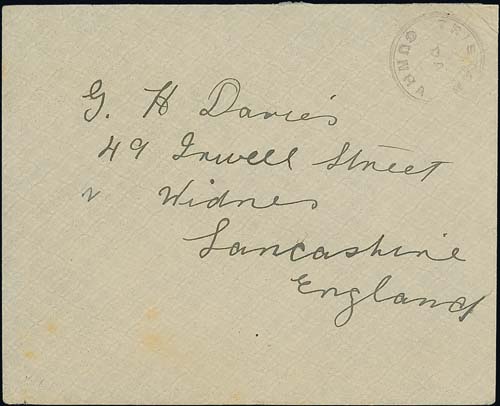 G. H Davies
49 Irwell Street
Widnes
Lancashire
England